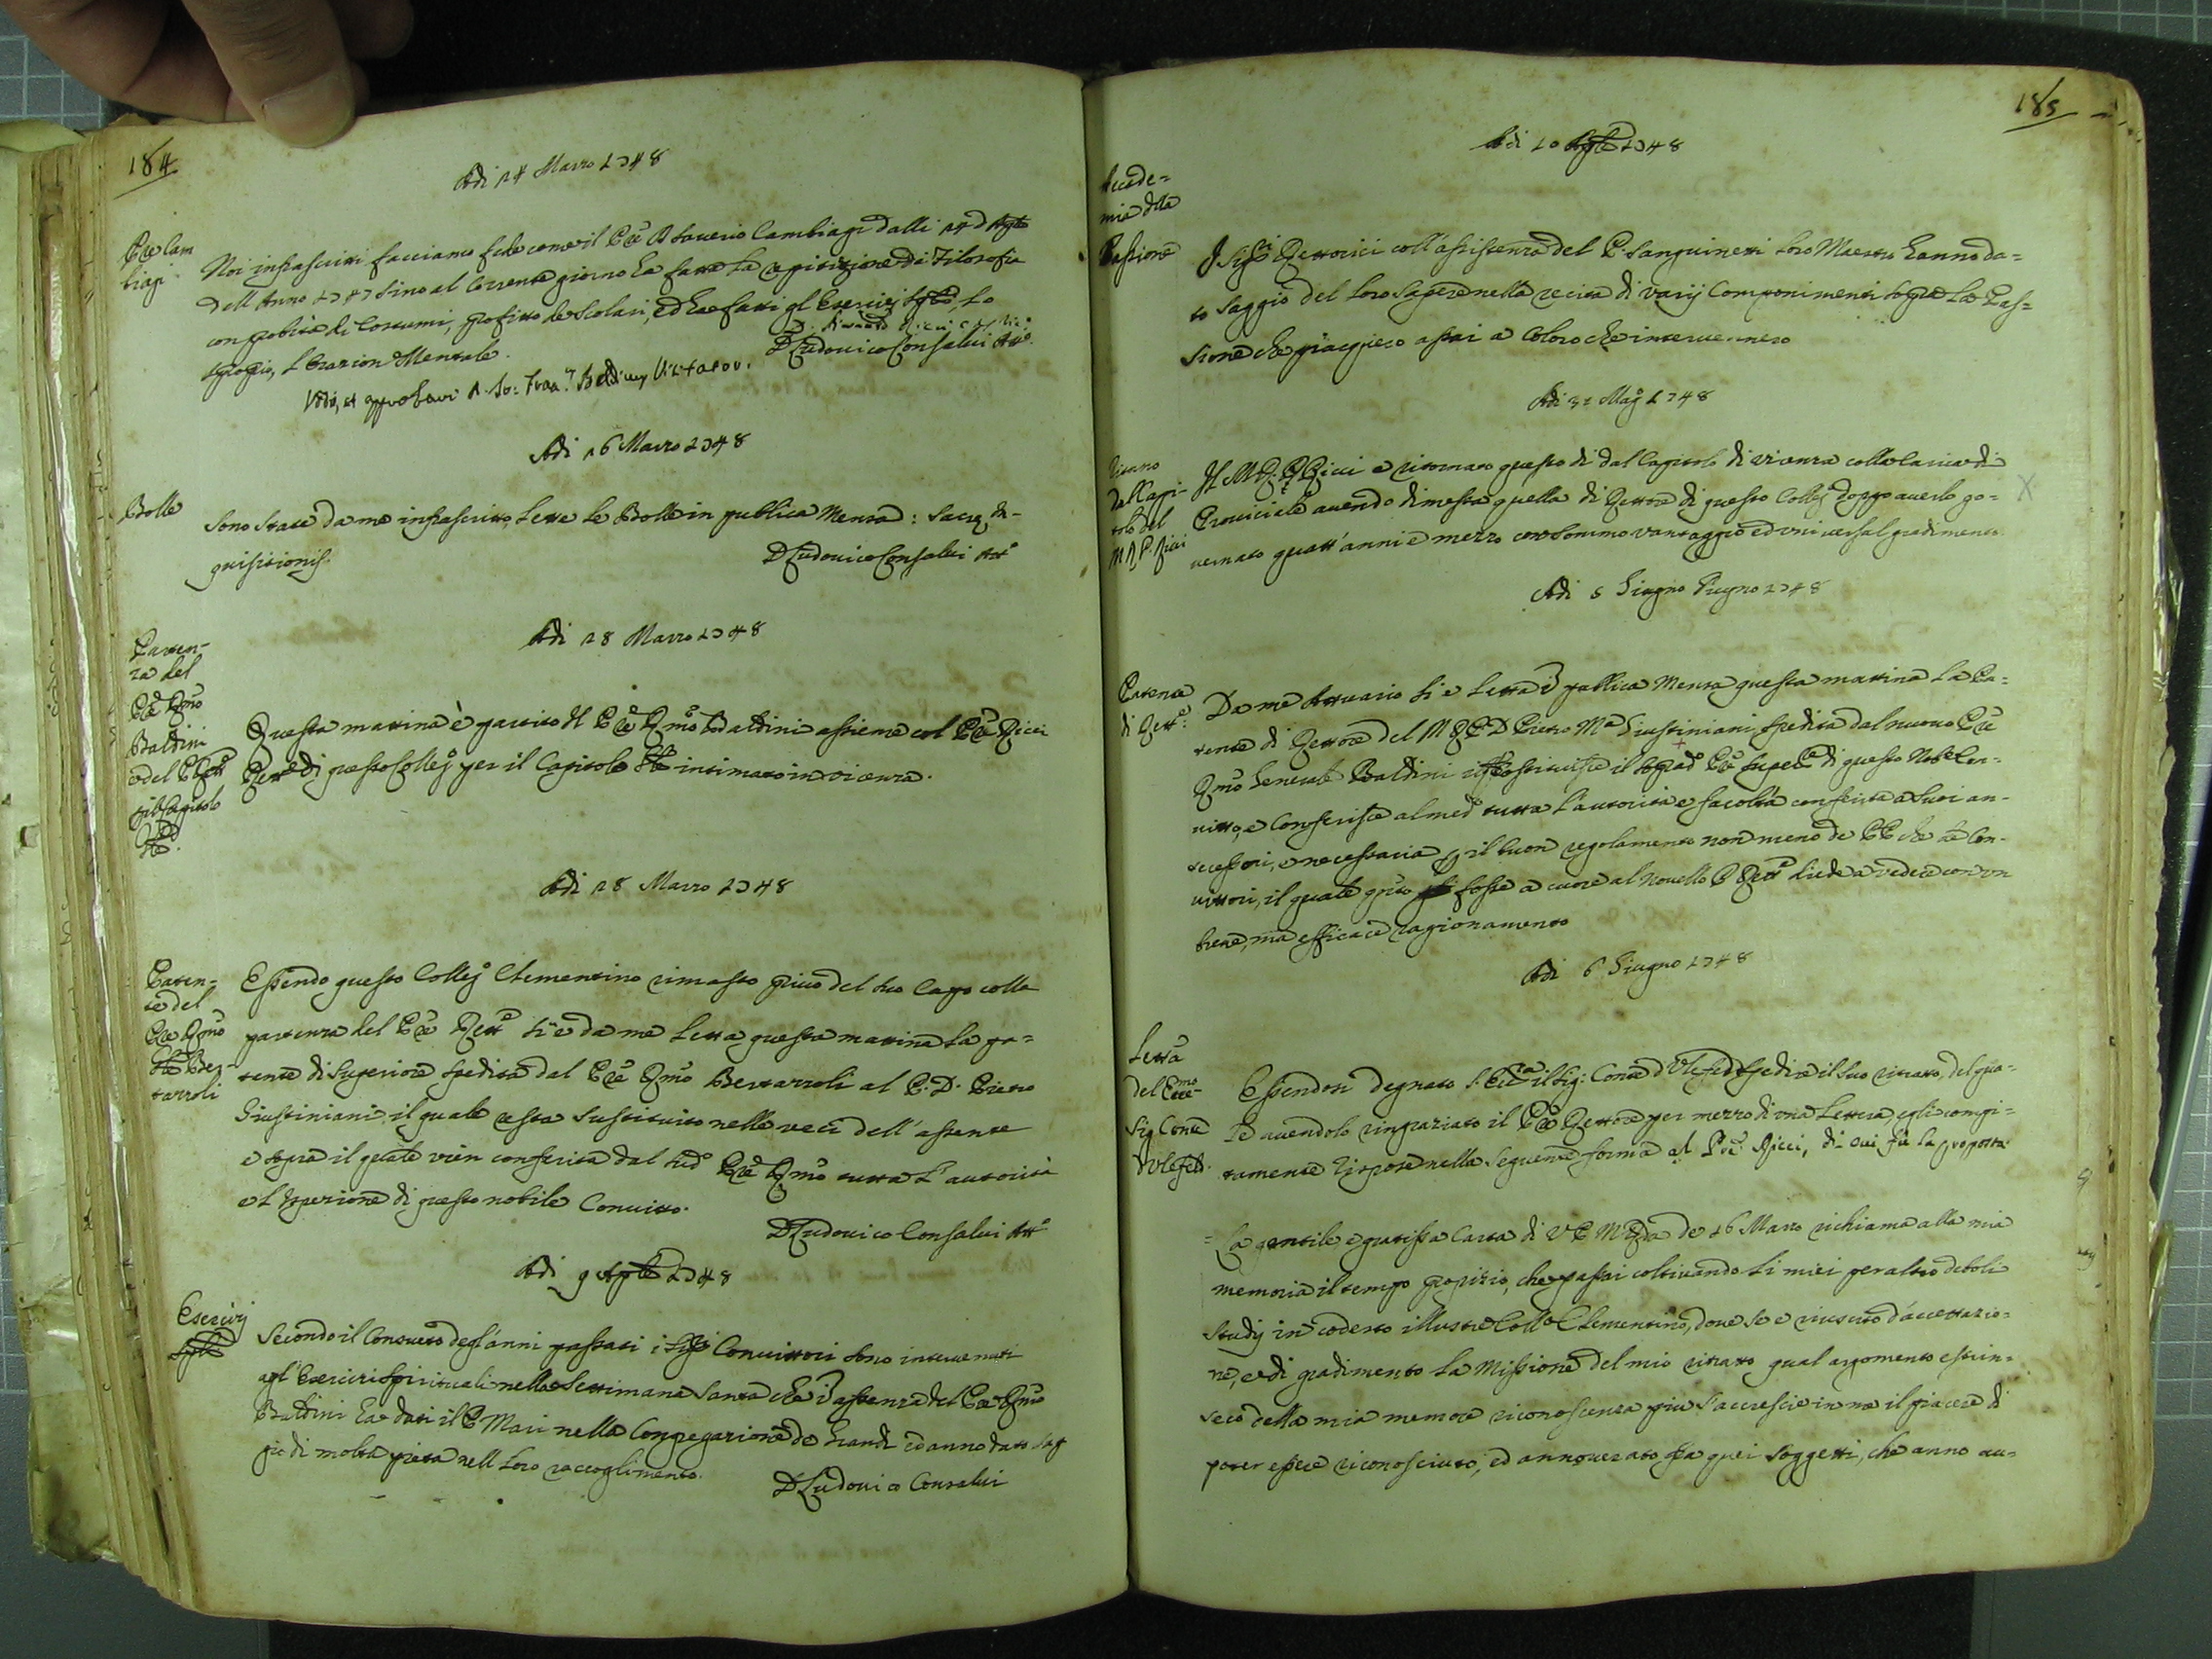 184
Adi 14 Marzo 1748
Pre Cam
biagi
Noi infrascritti facciamo fede come il Pre D Saverio Cambiagi dalli 14 d'Aple
dell Anno 1747 sino al corrente giorno ha fatta la repitizione di Filosofia
con probità di Costumi, profitto de Scolari, ed ha fatti gl Esercizj Spli, lo
spoglio, l'Orazion Mentale.
D Ludovico Consalvi Att.o
Vidi, et approbavi D. Jo: Fran.s Baldinus Visitator.
Adi 16 Marzo 1748
Bolle
Sono state da me infrascritto lette le Bolle in publica Mensa: Sacrae, In-
quisitionis.
D Ludovico Consalvi Att.o
Adi 28 Marzo 1748
Parten-
za del
Pre Rmo
Baldini
e del P Rett.
pel Capitolo
Gle.
Questa mattina è partito il Pre Rmo Baldini assieme col Pre Ricci
Rett.e di questo Colleg.o per il Capitolo Gle intimato in Vicenza.
Adi 28 Marzo 1748
Paten-
te del
Pre Rmo
Gle Ber-
tazzoli
Essendo questo Colleg.o Clementino rimasto privo del suo Capo colla
partenza del Pre Rett.e si è da me letta questa mattina la pa-
tente di Superiore spedita dal Pre Rmo Bertazzoli al P. D. Pietro
Giustiniani, il quale resta sustituito nelle veci dell'assente
e sopra il quale vien conferita dal sud.o Pre Rmo tutta l'autorità
e l'Ispezione di questo nobile Convitto.
D Ludovico Consalvi Att.o
Adi 9 Aple 1748
Esercizj
Spli
Secondo il Consueto degl'anni passati i SSri Convittori sono intervenuti
agl'Esercizi Spirituali nella Settimana Santa che in assenza del Pre Rmo
Baldini ha dati il P Mari nella Congregazione de Grandi ed anno dato sag
gio di molta pietà nell loro raccoglimento.
D Ludovico Consalvi
185
Adi 10 Aple 1748
Accade-
mia della
Passione
I Sig.ri Rettorici coll'assistenza del P. Sanguineti loro Maestro hanno da-
to saggio del loro sapere nella recita di varij Componimenti sopra la Pas-
sione che piacquero assai a coloro che intervennero
Adi 31 Mag.o 1748
Ritorno
dal Capi-
tolo del
M R P. Ricci
Il M R. P Ricci è ritornato questo dì dal Capitolo di Vicenza colla carica di
Provinciale avendo dimessa quella di Rettore di questo Colleg.o doppo averlo go-
vernato quatt'anni e mezzo con sommo vantaggio ed universal gradimento
Adi 5 Giugno Giugno 1748
Patente
di Rett.e
Da me Attuario si è letta in publica Mensa questa mattina la Pa-
tente di Rettore del M R P D Pietro M.a Giustiniani, spedita dal nuovo Pre
Rmo Generale Baldini costituisce il soprad.o Pre Super.e di questo Nob.e Con-
vitto, e conferisce al med.o tutta l'autorità e facoltà conferita a suoi an-
tecessori, e necessaria p il buon regolamento non meno de PP che de Con-
vittori, il quale q.to fosse a cuore al novello P Rett.e diede a vedere con un
breve, ma efficace ragionamento
Adi 6 Giugno 1748
Lettera
del Emo
Sig Conte
d'Ulefeld.
Essendosi degnato S. Ecc.a il Sig: Conte d'Ulefeld spedire il suo ritratto, del qua-
le avendolo ringraziato il Pre Rettore per mezzo di una Lettera, egli compi-
tamente rispose nella seguente forma al P re Ricci, di cui fu la proposta:
= La gentile, e gratissa Carta di V P M Rda de 16 Marzo richiama alla mia
memoria il tempo propizio, che passai coltivando li miei per altro deboli
studj in codesto illustre Coll.o Clementino, dove se è riuscito d'accettazio-
ne, e di gradimento la Missione del mio ritratto qual argomento estrin-
seco della mia memore riconoscenza più s'accresce in me il piacere di
poter essere riconosciuto, ed annoverato fra quei soggetti, che anno au-